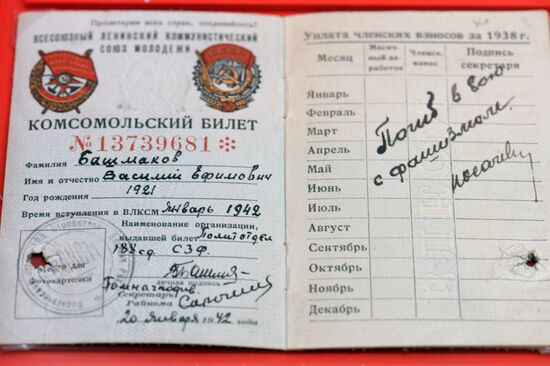 Пролетарии всех стран, соединяйтесь!
ВСЕСОЮЗНЫЙ ЛЕНИНСКИЙ КОММУНИСТИЧЕСКИЙ
СОЮЗ МОЛОДЕЖИ
КОМСОМОЛЬСКИЙ БИЛЕТ
№13739681
Фамилия Башмаков
Имя и отчество Василий Ефимович
Год рождения 1921
Время вступления в ВЛКСМ январь 1942
Наименование организации,
выдавшей билет Политотдел
188 сд. СЗФ.
Место для
фотокарточки
личная подпись
Помначподив
Секретарь
Райкома
20 января 1942 года
Уплата членских взносов за 1938 г.
Месяц
Месячный заработок
Членск. взнос
Подпись секретаря
Январь
Февраль
Март
Апрель
Май
Июнь
Июль
Август
Сентябрь
Октябрь
Ноябрь
Декабрь
Погиб в бою
с фашизмом.